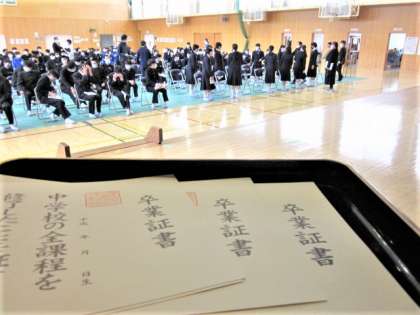 卒業証書
卒業証書
卒業証書
年 月 日生
中学校の全課程を